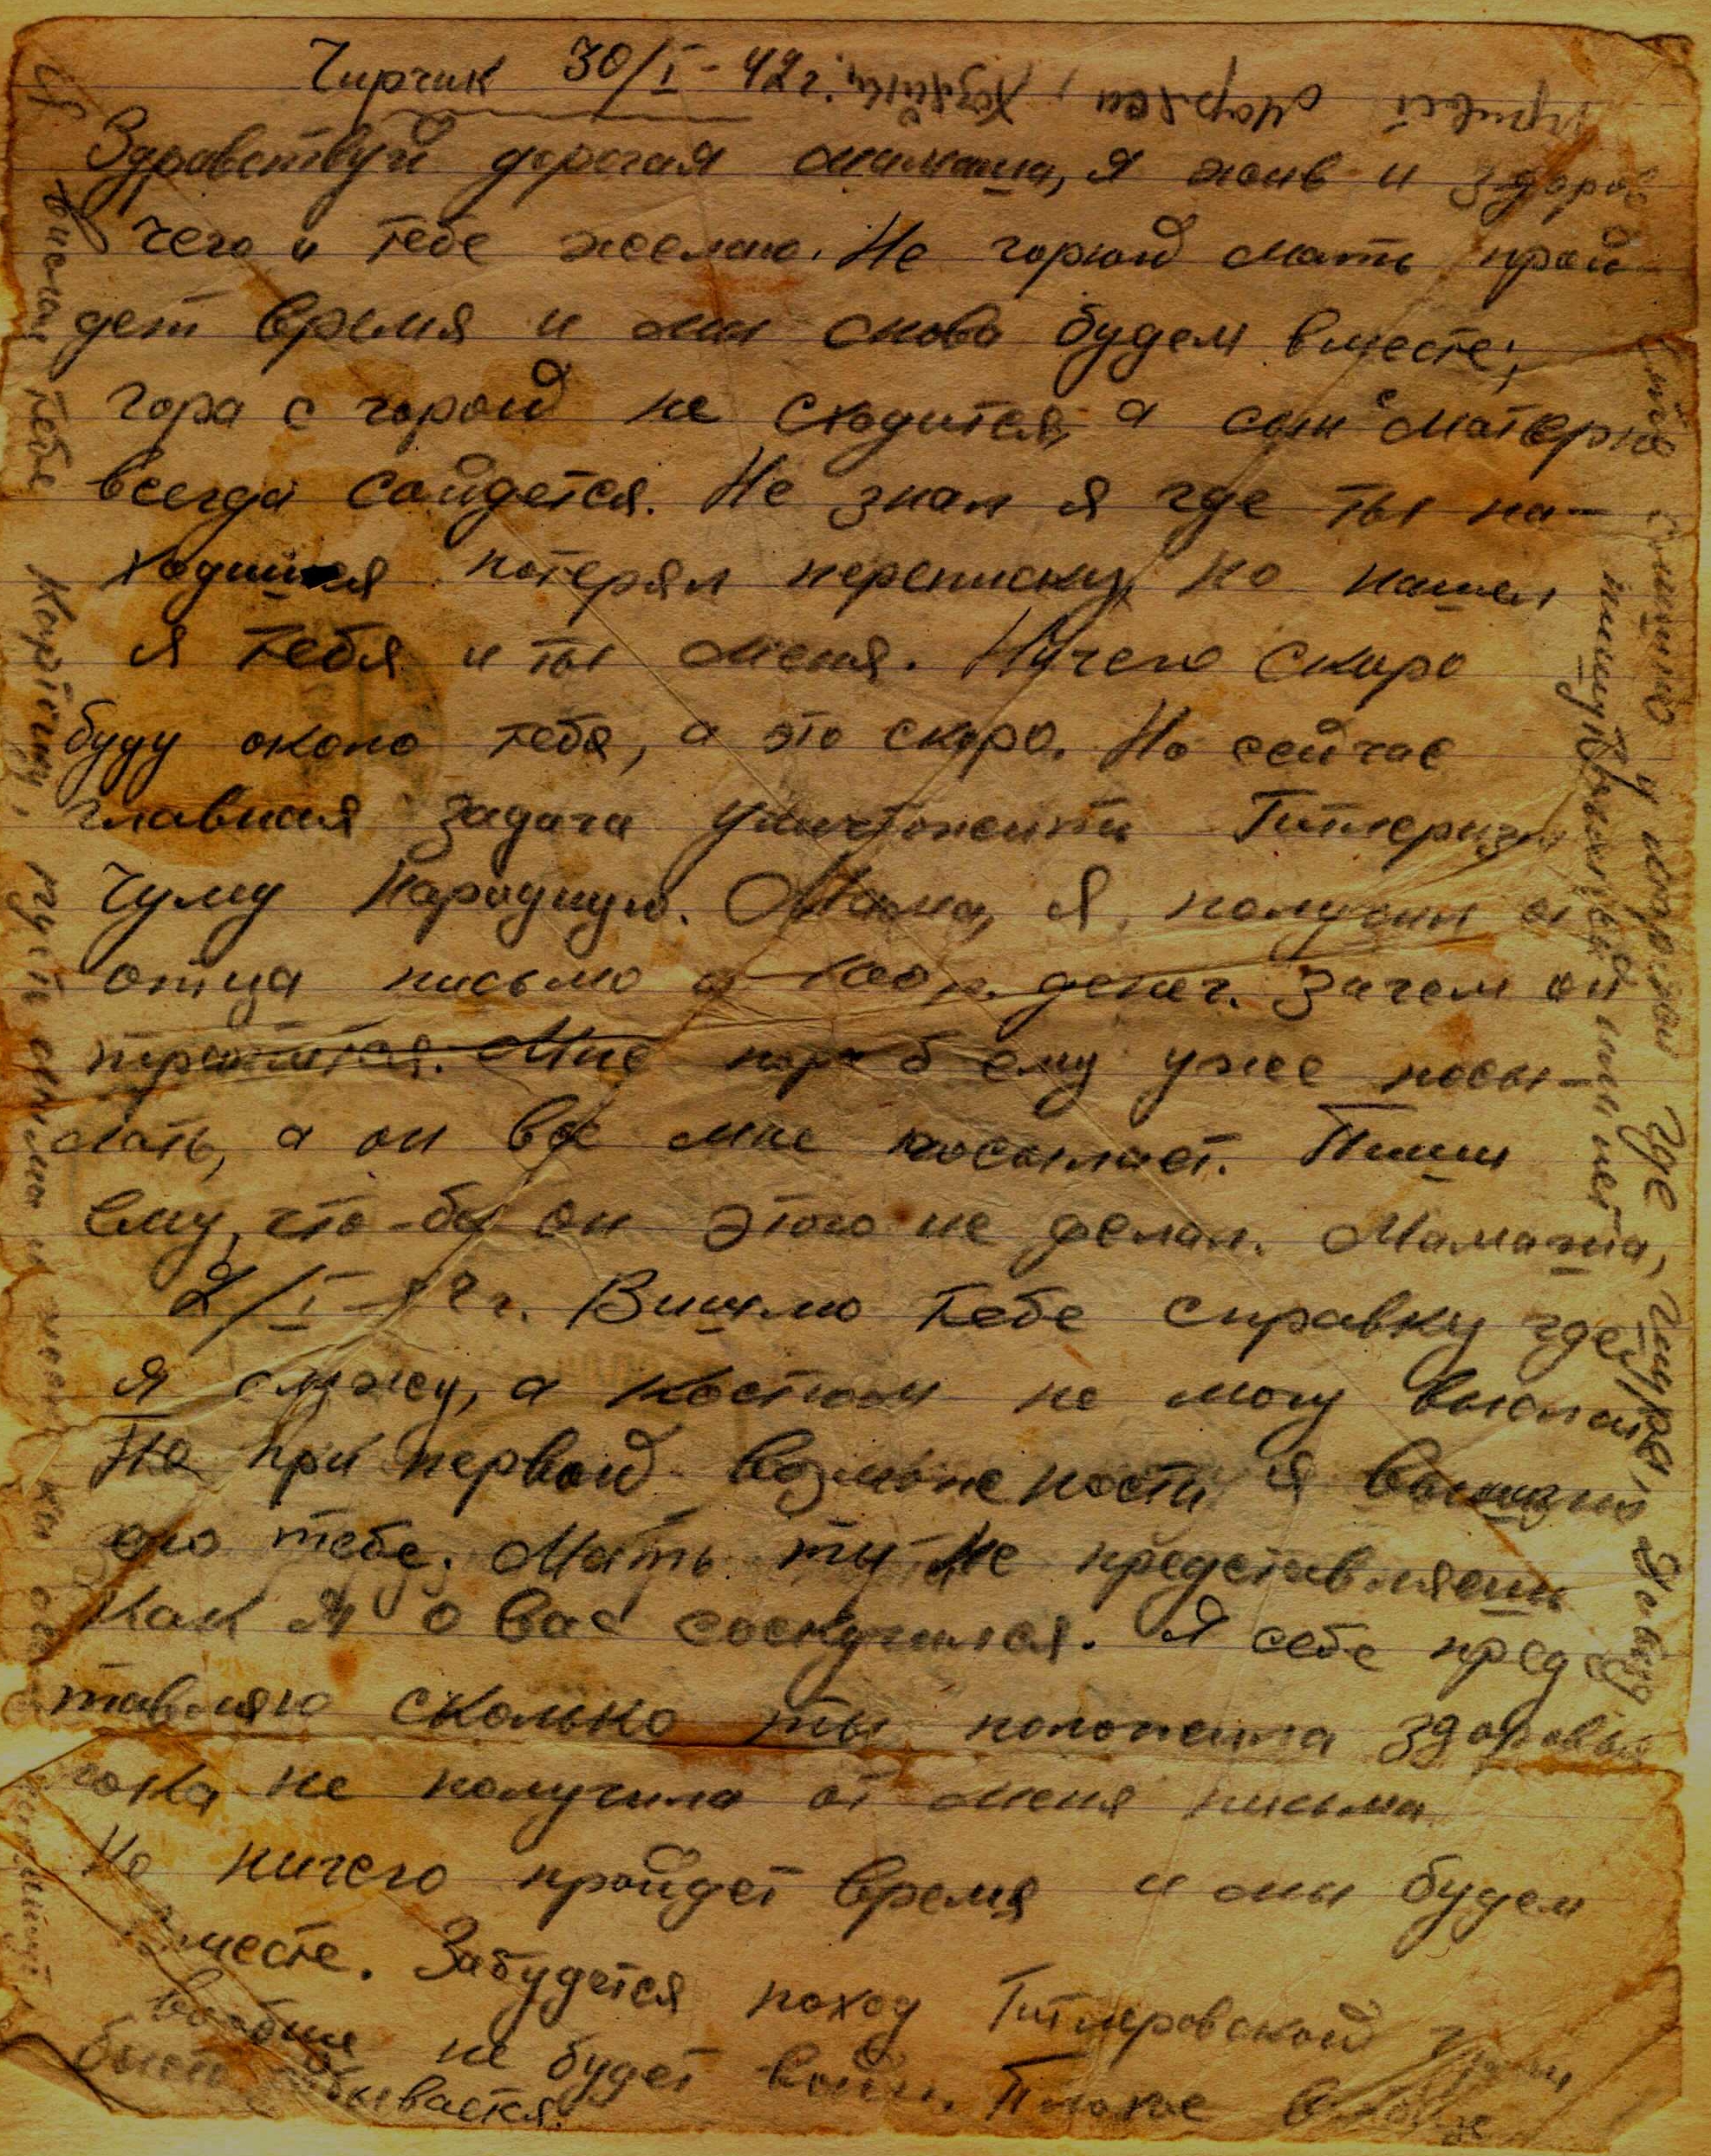 Чирчик 30/I-42г.
Здравствуй дорогая мамаша, я жив и здоров
чего и тебе желаю. Не горюй мать прой-
дет время и мы снова будем вместе,
гора с горой не сходится, а сын с матерью
всегда сойдется. Не знал я где ты на-
ходишься потерял переписку, но нашел
я тебя и ты меня. Ничего скоро
буду около тебя, а это скоро. Но сейчас
главная задача уничтожить
чуму народную. Мама, я получил от
отца письмо и 100 р. денег. Зачем он
тратится. Мне пора б ему уже посы-
лать, а он все мне посылает. Пиши
ему, что-бы он этого не делал. Мамаша,
2/I-42г. Вишлю тебе справку где
я служу, а костюм не могу выслать
Но при первой возможности я вышлю
его тебе. Мать ты не представляешь
Как я о вас соскучился. Я себе предс
тавляю сколько ты положила здоровья
пока не получила от меня письма
Но ничего пройдет время и мы будем
вместе. Забудется поход Гитлеровской
вообще не будет войн. Плохое
быстро забывается.
привет хозяйки
тебе карточку, пусть
слишно у которой где Шура,
пишут или нет